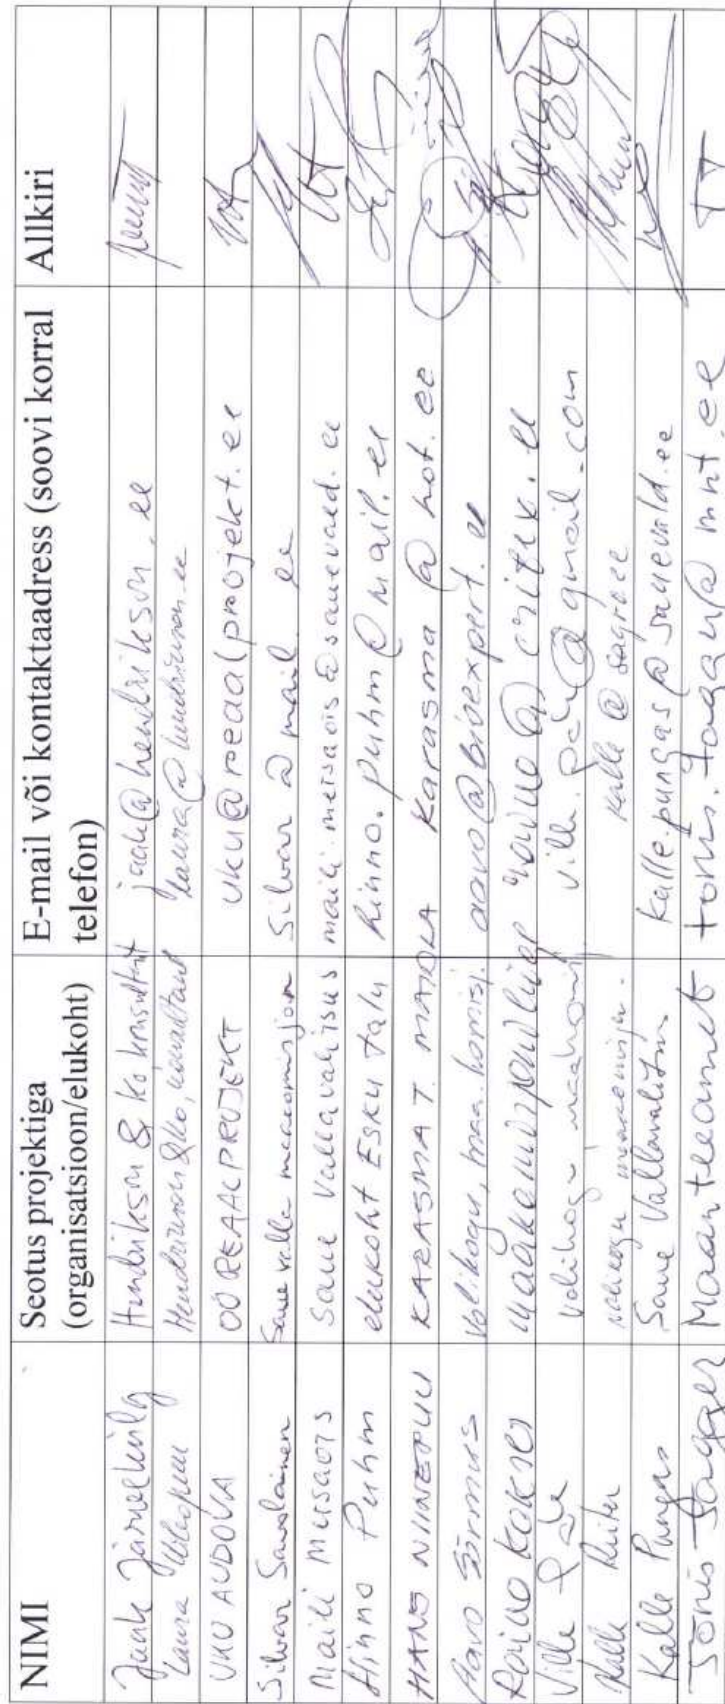 NIMI Seotus projektiga (organisatsioon/elukoht) E-mail või kontaktaadress (soovi korral telefon) Allkiri
Jaak Järvekülg Hendrikson & Ko konsultant jaak@hendrikson.ee
Laura Hendrikson & Ko, konsultant laura@hendrikson.ee
UKU AUDOVA OÜ REAALPROJEKT uku@reaalprojekt.ee
Silvar Savolainen Saue valla maakomisjon Silvar@mail.ee
Maili Metsaots Saue Vallavalitsus maili.metsaots@sauevald.ee
Hinno Puhm elukoht Esku talu hinno.puhm@mail.ee
HANS NIINEPUU KARASMA T. Karasma@hot.ee
Aavo Sõrmus Volikogu, maa.komisj. aavo@bioexpert.ee
Raino @critex.ee
Ville Volikogu @gmail.com
Kalle volikogu
Kalle Pungas Saue Vallavalitsus kalle.pungas@sauevald.ee
Tõnis Tagger Maanteeamet tonis.tagger@mnt.ee TT